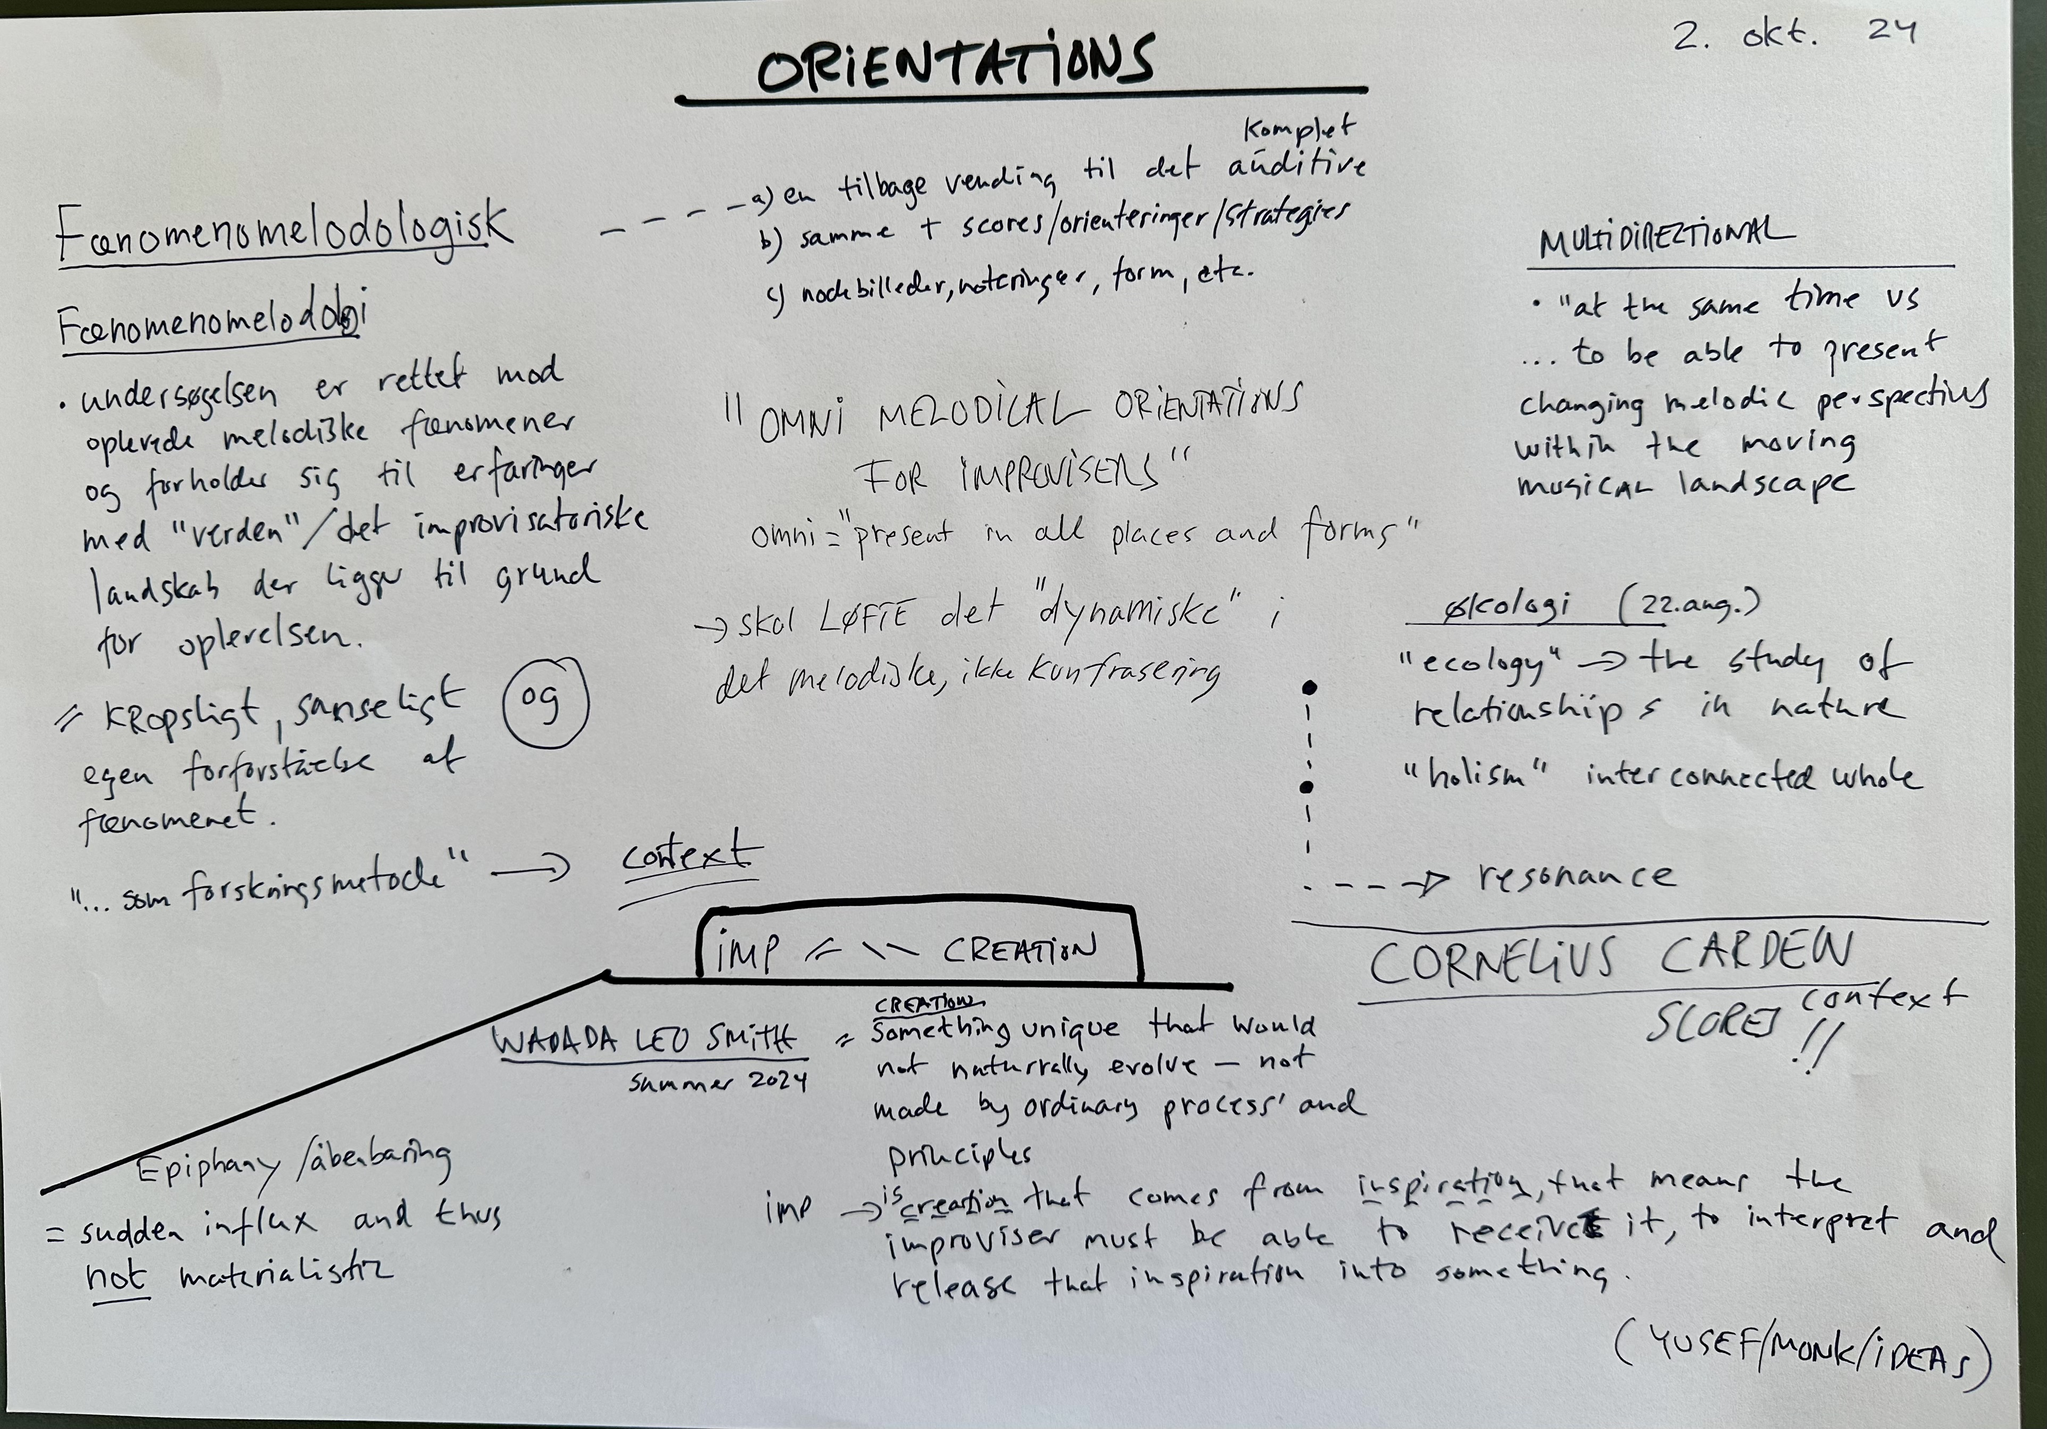 ORIENTATIONS
2. okt. 24
Fænomenomelodologisk
komplet
a) en tilbage vending til det auditive
b) samme + scores/orienteringer/strategies
c) nodebilleder, noteringer, form, etc.
Fænomenomelodologi
• undersøgelsen er rettet mod
oplevede melodiske fænomener
og forholder sig til erfaringer
med "verden"/det improvisatoriske
landskab der ligger til grund
for oplevelsen.
= KROPSligt, sanseligt og
egen forforståelse af
fænomenet.
"... som forskningsmetode" → context
"OMNI MELODICAL ORIENTATIONS
FOR IMPROVISERS"
omni = "present in all places and forms"
→ skal LØFTE det "dynamiske" i
det melodiske, ikke kun frasering
MULTIDIREZTIONAL
• "at the same time vs
... to be able to present
changing melodic perspectives
within the moving
musical landscape
økologi (22. aug.)
"ecology" → the study of
relationships in nature
"holism" interconnected whole
→ resonance
CORNELIUS CARDEW
SCORES context !!
IMP = \\ CREATION
WADADA LEO SMITH
summer 2024
CREATION
= Something unique that would
not naturrally evolve – not
made by ordinary process' and
principles
Epiphany /åbenbaring
= sudden influx and thus
not materialistiz
imp → is creation that comes from inspiration, that means the
improviser must be able to receive it, to interpret and
release that inspiration into something.
(YUSEF/MONK/IDEAS)